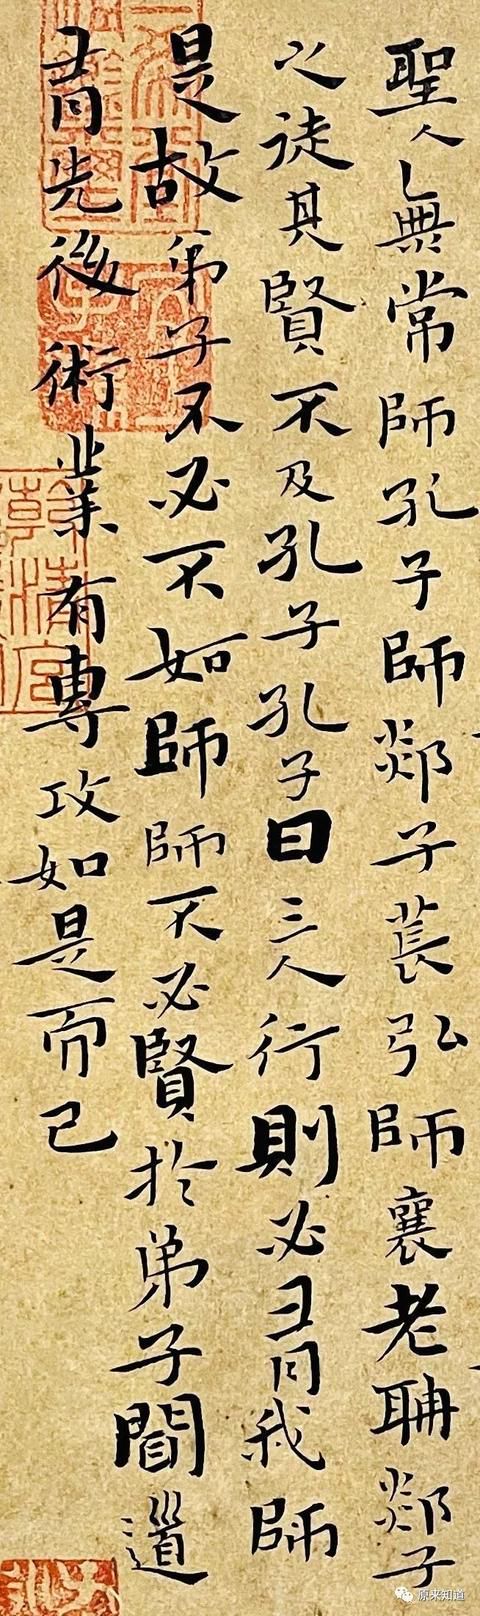 聖人無常師孔子師郯子萇弘師襄老聃郯子
之徒其賢不及孔子孔子曰三人行則必有我師
是故弟子不必不如師師不必賢於弟子聞道
有先後術業有專攻如是而已
原来知道